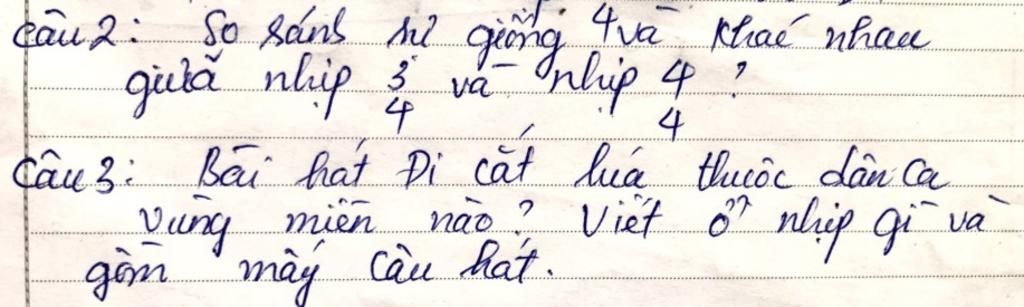 Câu 2: So sánh sự giống và khác nhau
giữa nhịp 3/4 và nhịp 4/4 ?
Câu 3: Bài hát Đi cắt lúa thuộc dân ca
vùng miền nào? Viết ở nhịp gì và
gồm mấy câu hát.